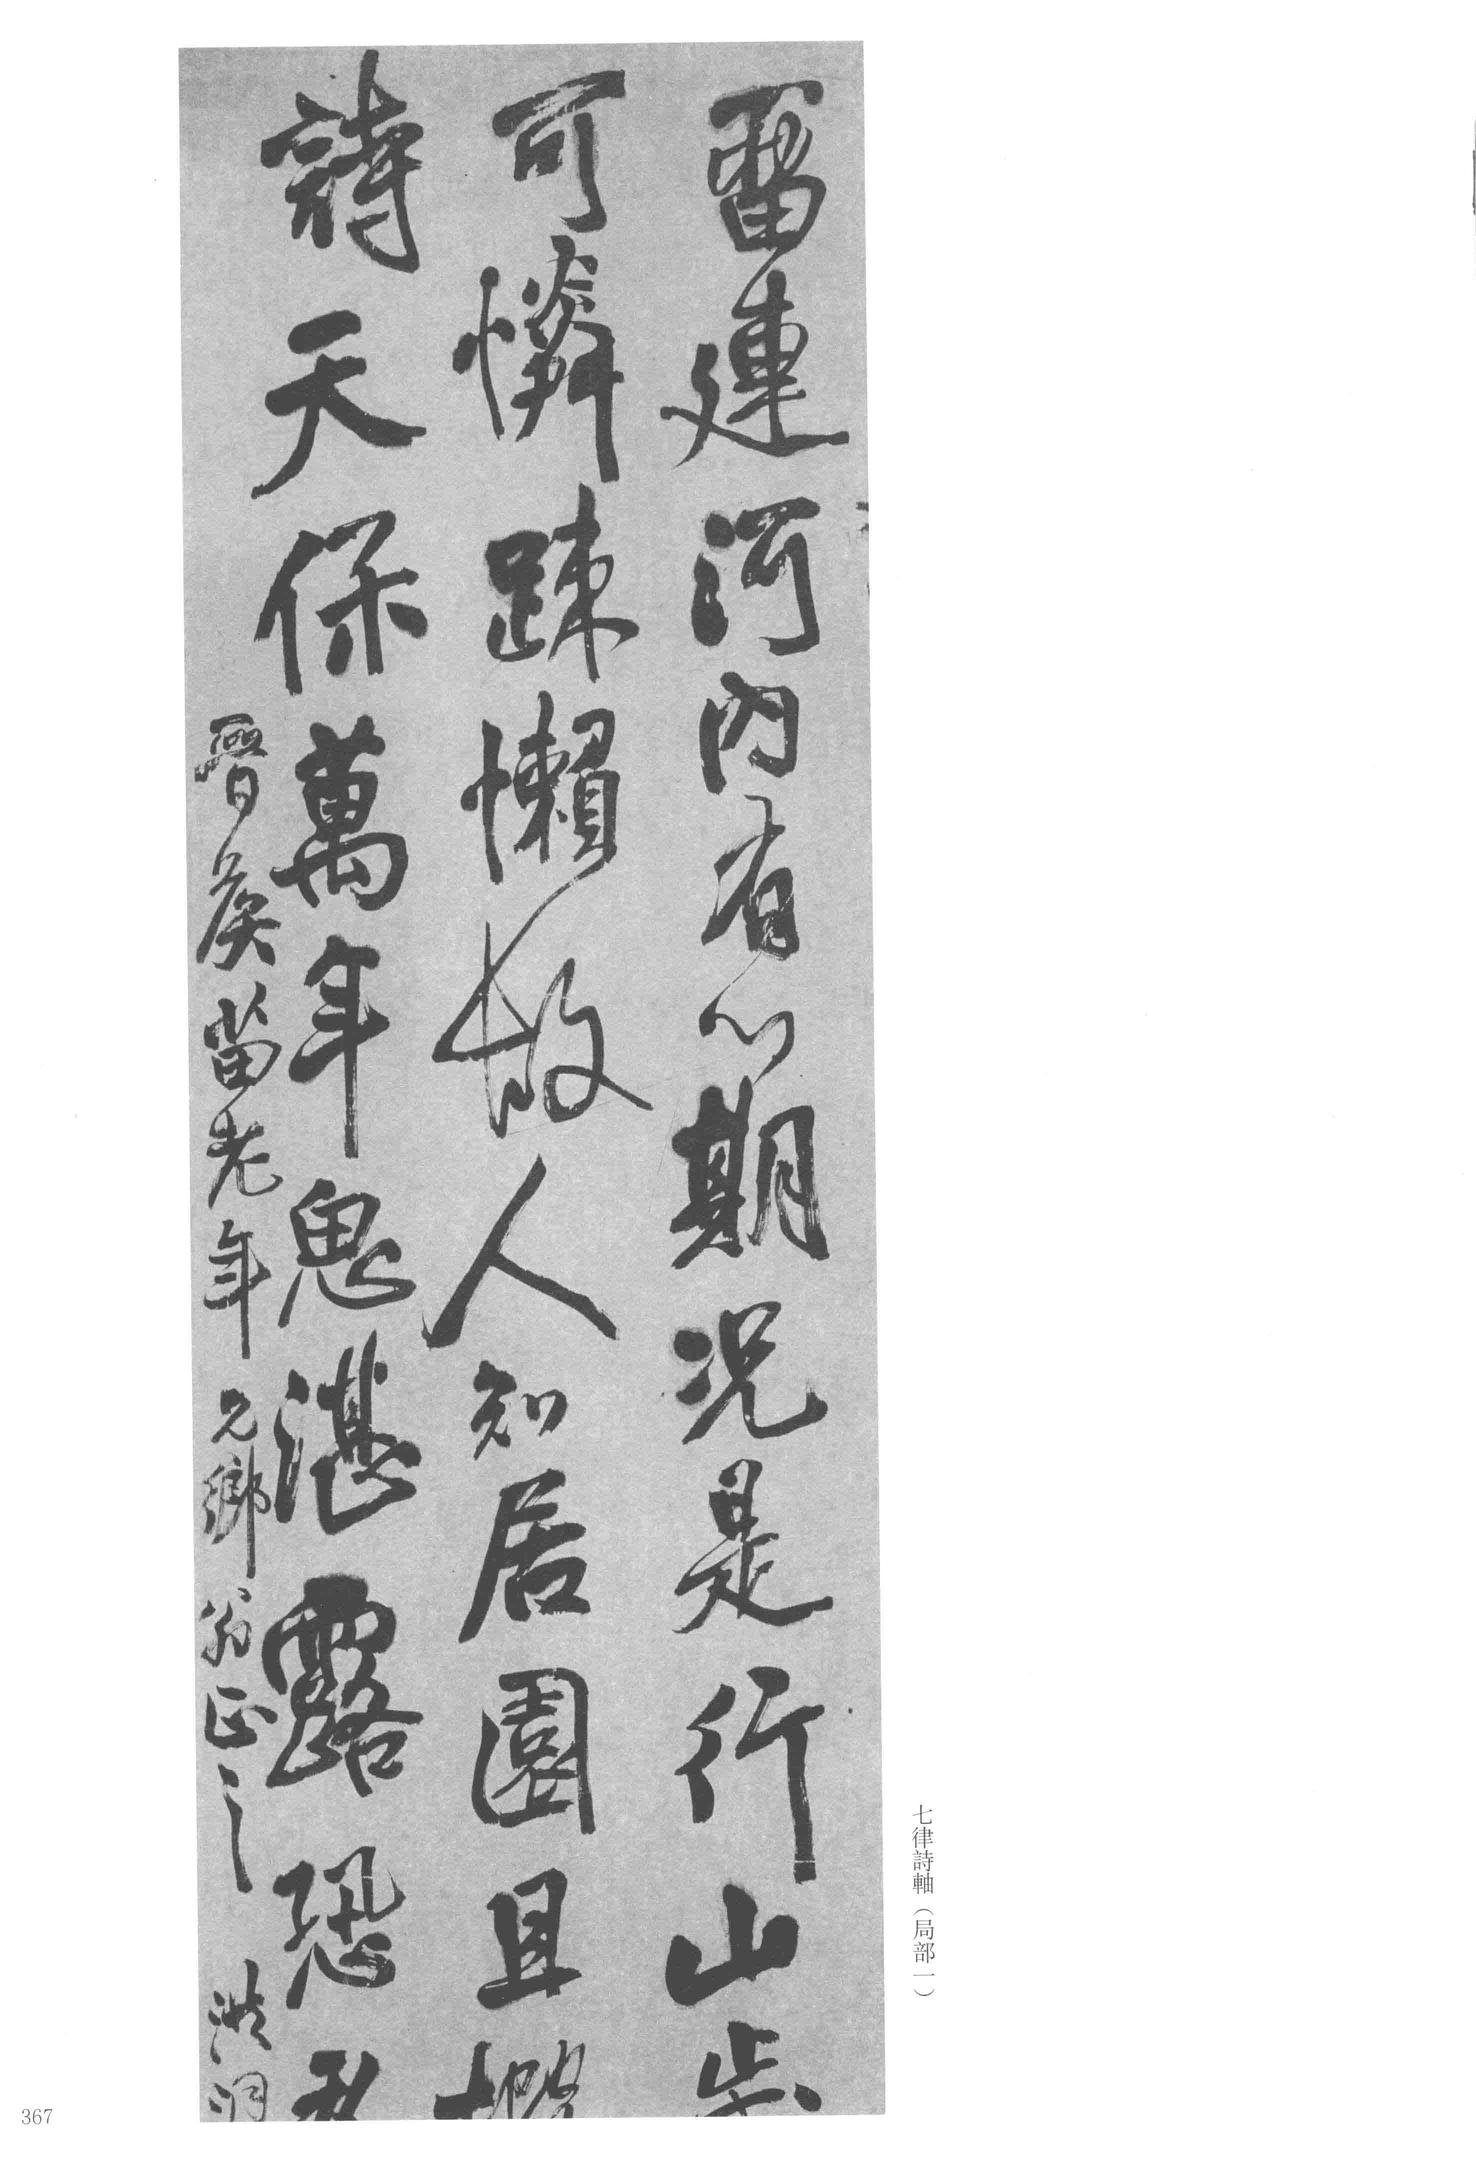 留連河内有心期況是行山步
可憐踈懶故人知居園且
詩天保萬年思湛露恐
晉侯苗老年兄鄉翁正之 洪洞
七律詩軸（局部一）
367